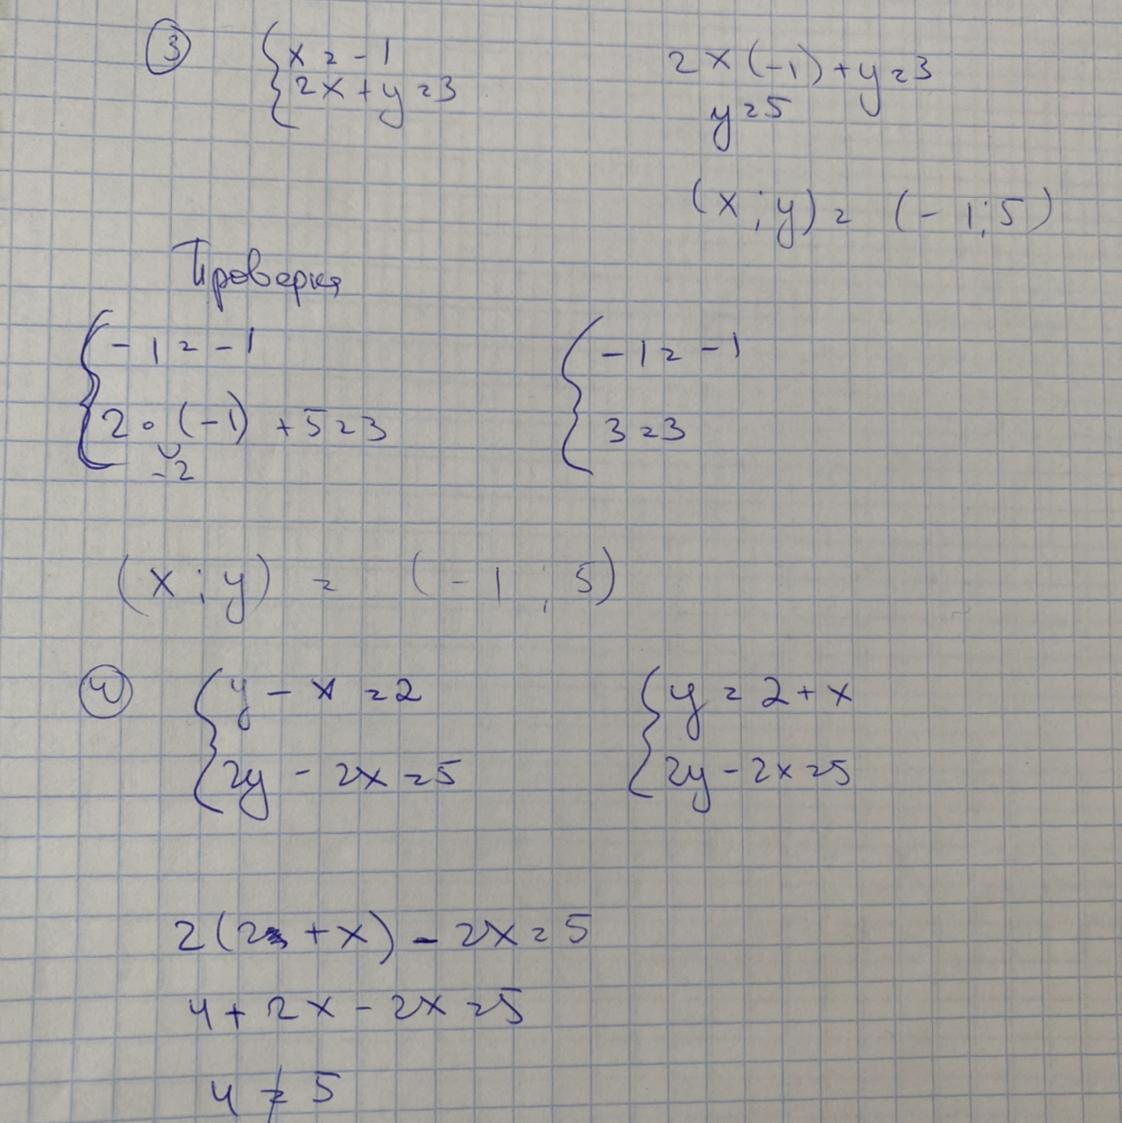 ③ { x = -1
2x + y = 3
2 × (-1) + y = 3
y = 5
(x ; y) = (-1 ; 5)
Проверка
{ -1 = -1
2 · (-1) + 5 = 3
-2
{ -1 = -1
3 = 3
(x ; y) = (-1 ; 5)
④ { y - x = 2
2y - 2x = 5
{ y = 2 + x
2y - 2x = 5
2(2 + x) - 2x = 5
4 + 2x - 2x = 5
4 ≠ 5